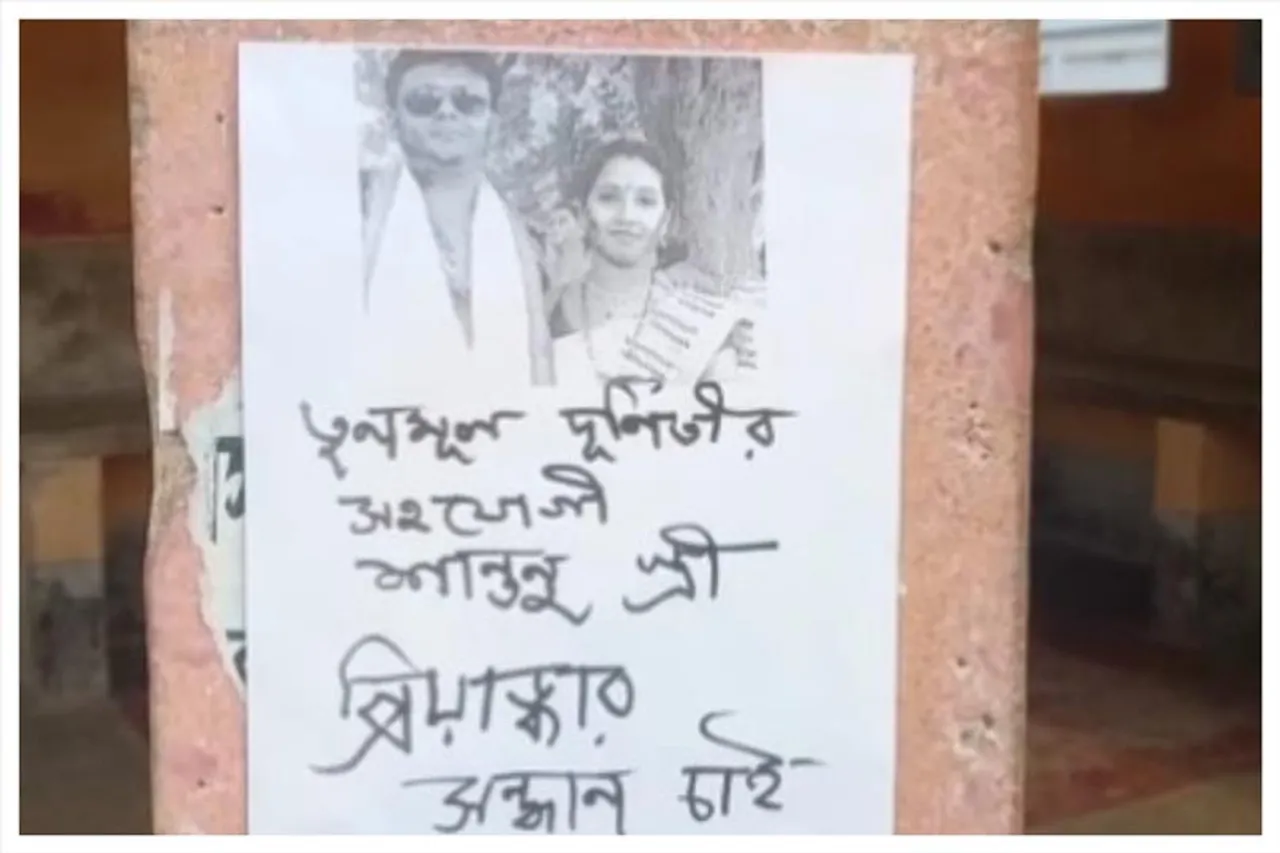 তৃনমূল দূর্নিতীর
সহযোগী
শান্তনু স্ত্রী
প্রিয়াঙ্কার
সন্ধান চাই